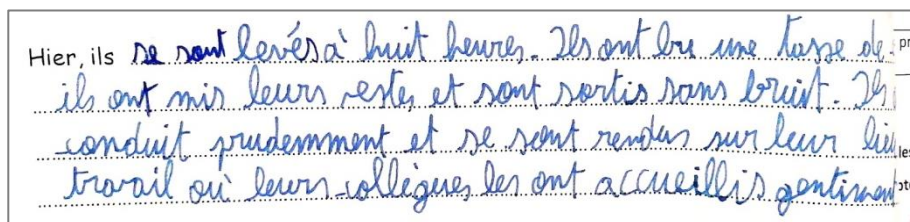 Hier, ils se sont levés à huit heures. Ils ont bu une tasse de
ils ont mis leurs vestes et sont sortis sans bruit. Ils
conduit prudemment et se sont rendus sur leur lieu
travail où leurs collègues les ont accueillis gentiment